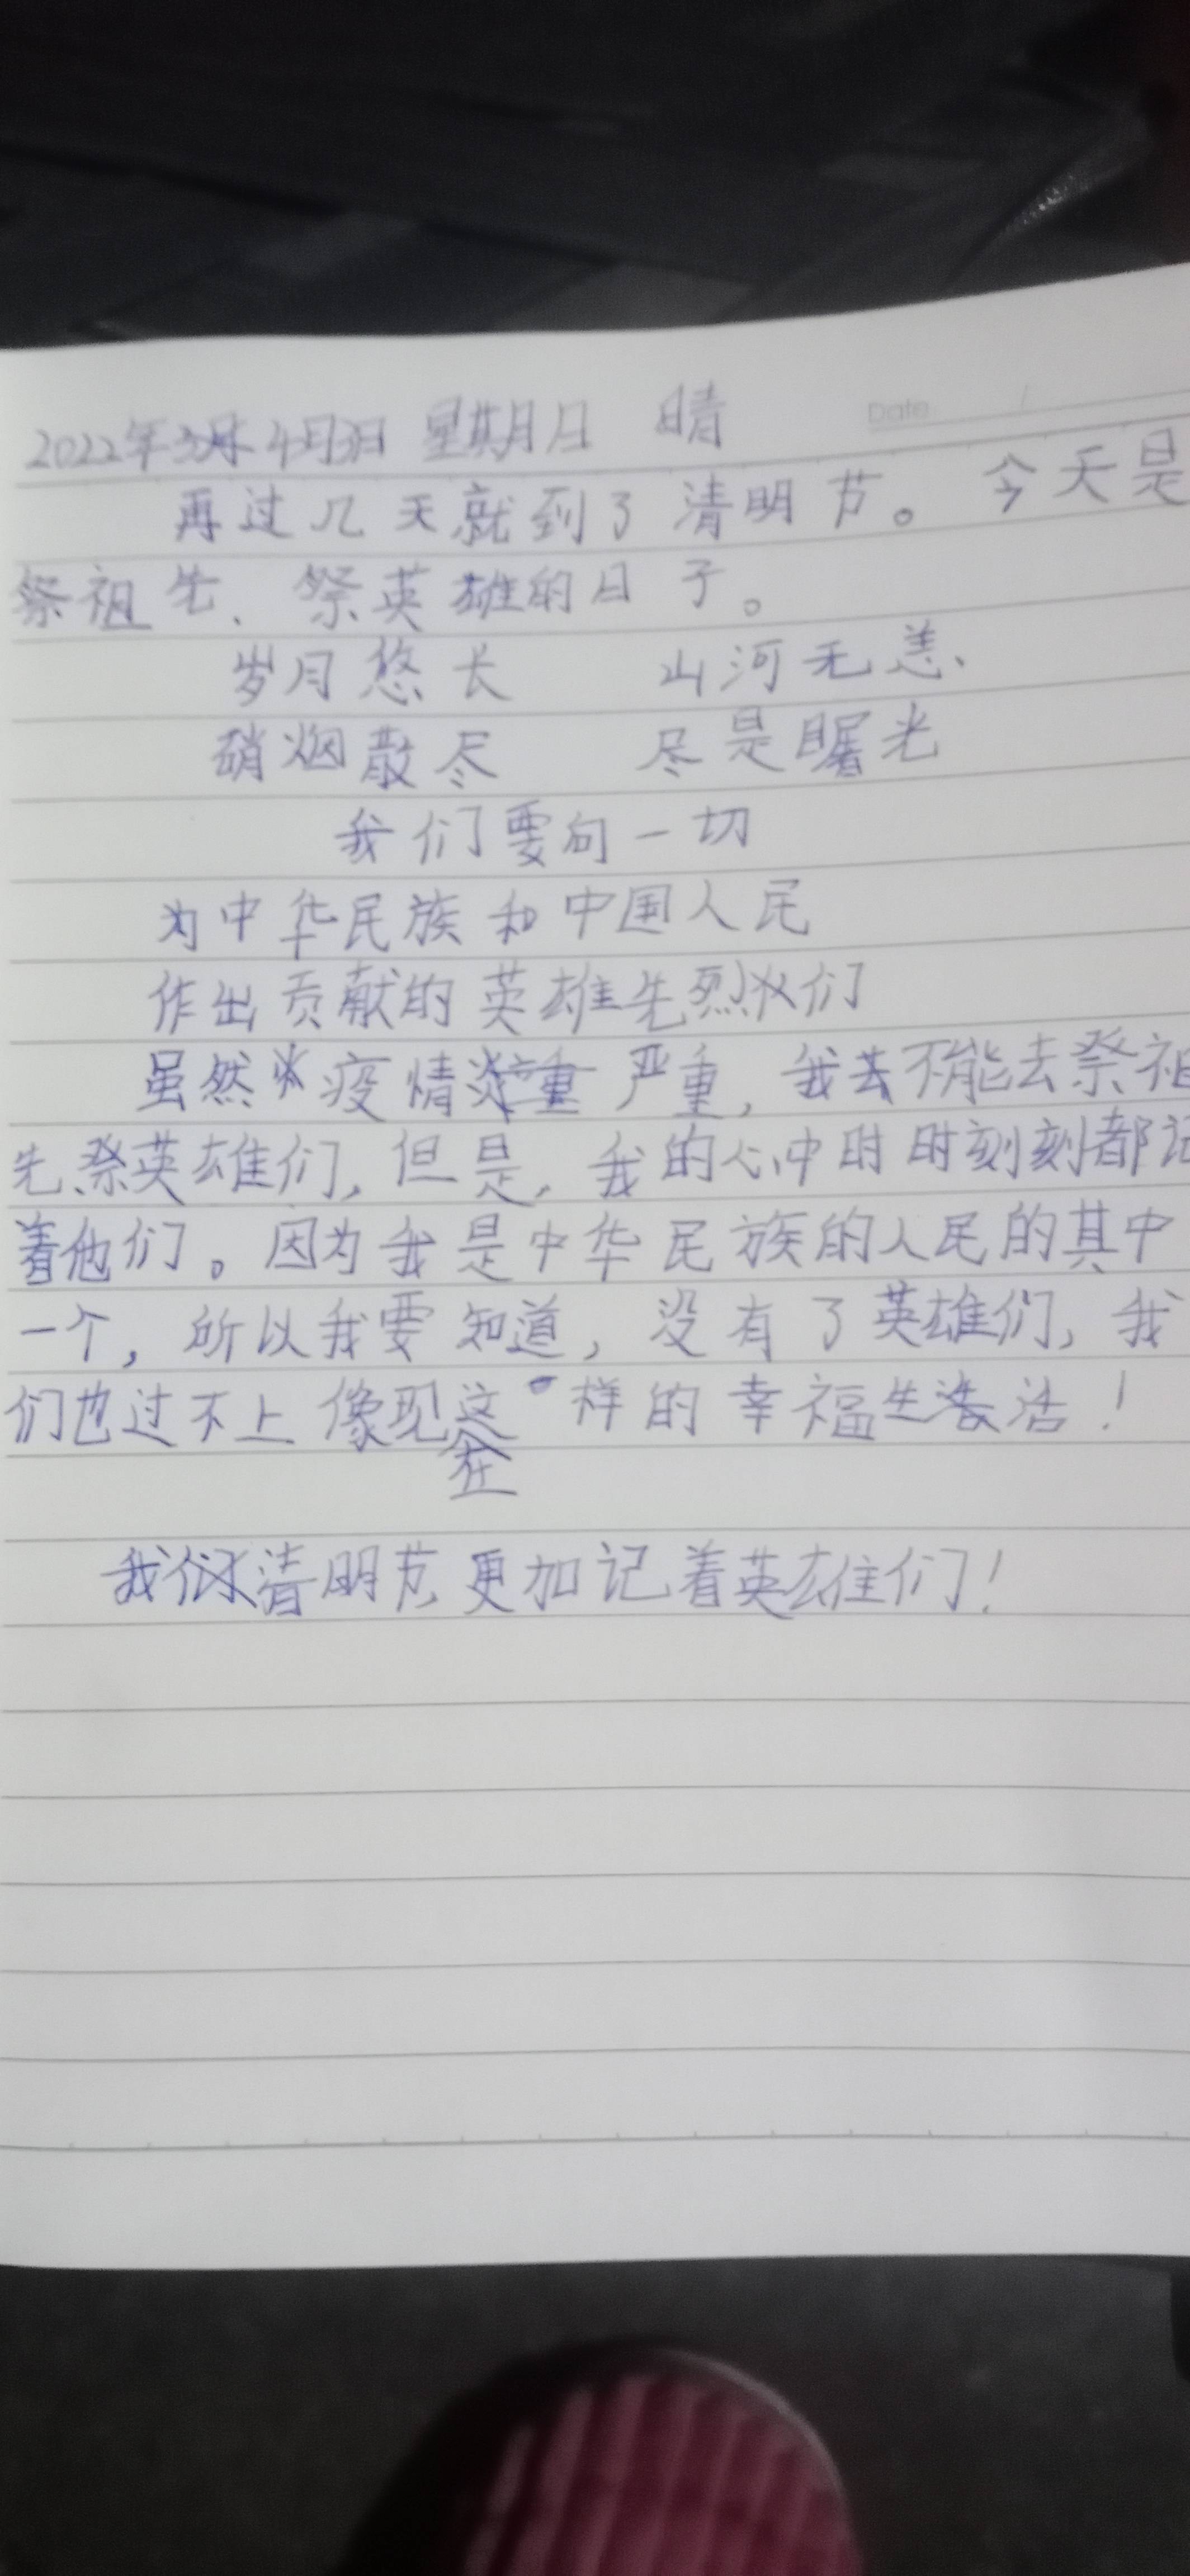 Date
2022年4月3日 星期日 晴
再过几天就到了清明节。今天是
祭祖先、祭英雄的日子。
岁月悠长 山河无恙、
硝烟散尽 尽是曙光
我们要向一切
为中华民族和中国人民
作出贡献的英雄先烈们
虽然疫情严重,我不能去祭祖
先、祭英雄们,但是,我的心中时时刻刻都记
着他们。因为我是中华民族的人民的其中
一个,所以我要知道,没有了英雄们,我
们也过不上像现在这样的幸福生活!
我们清明节更加记着英雄们!